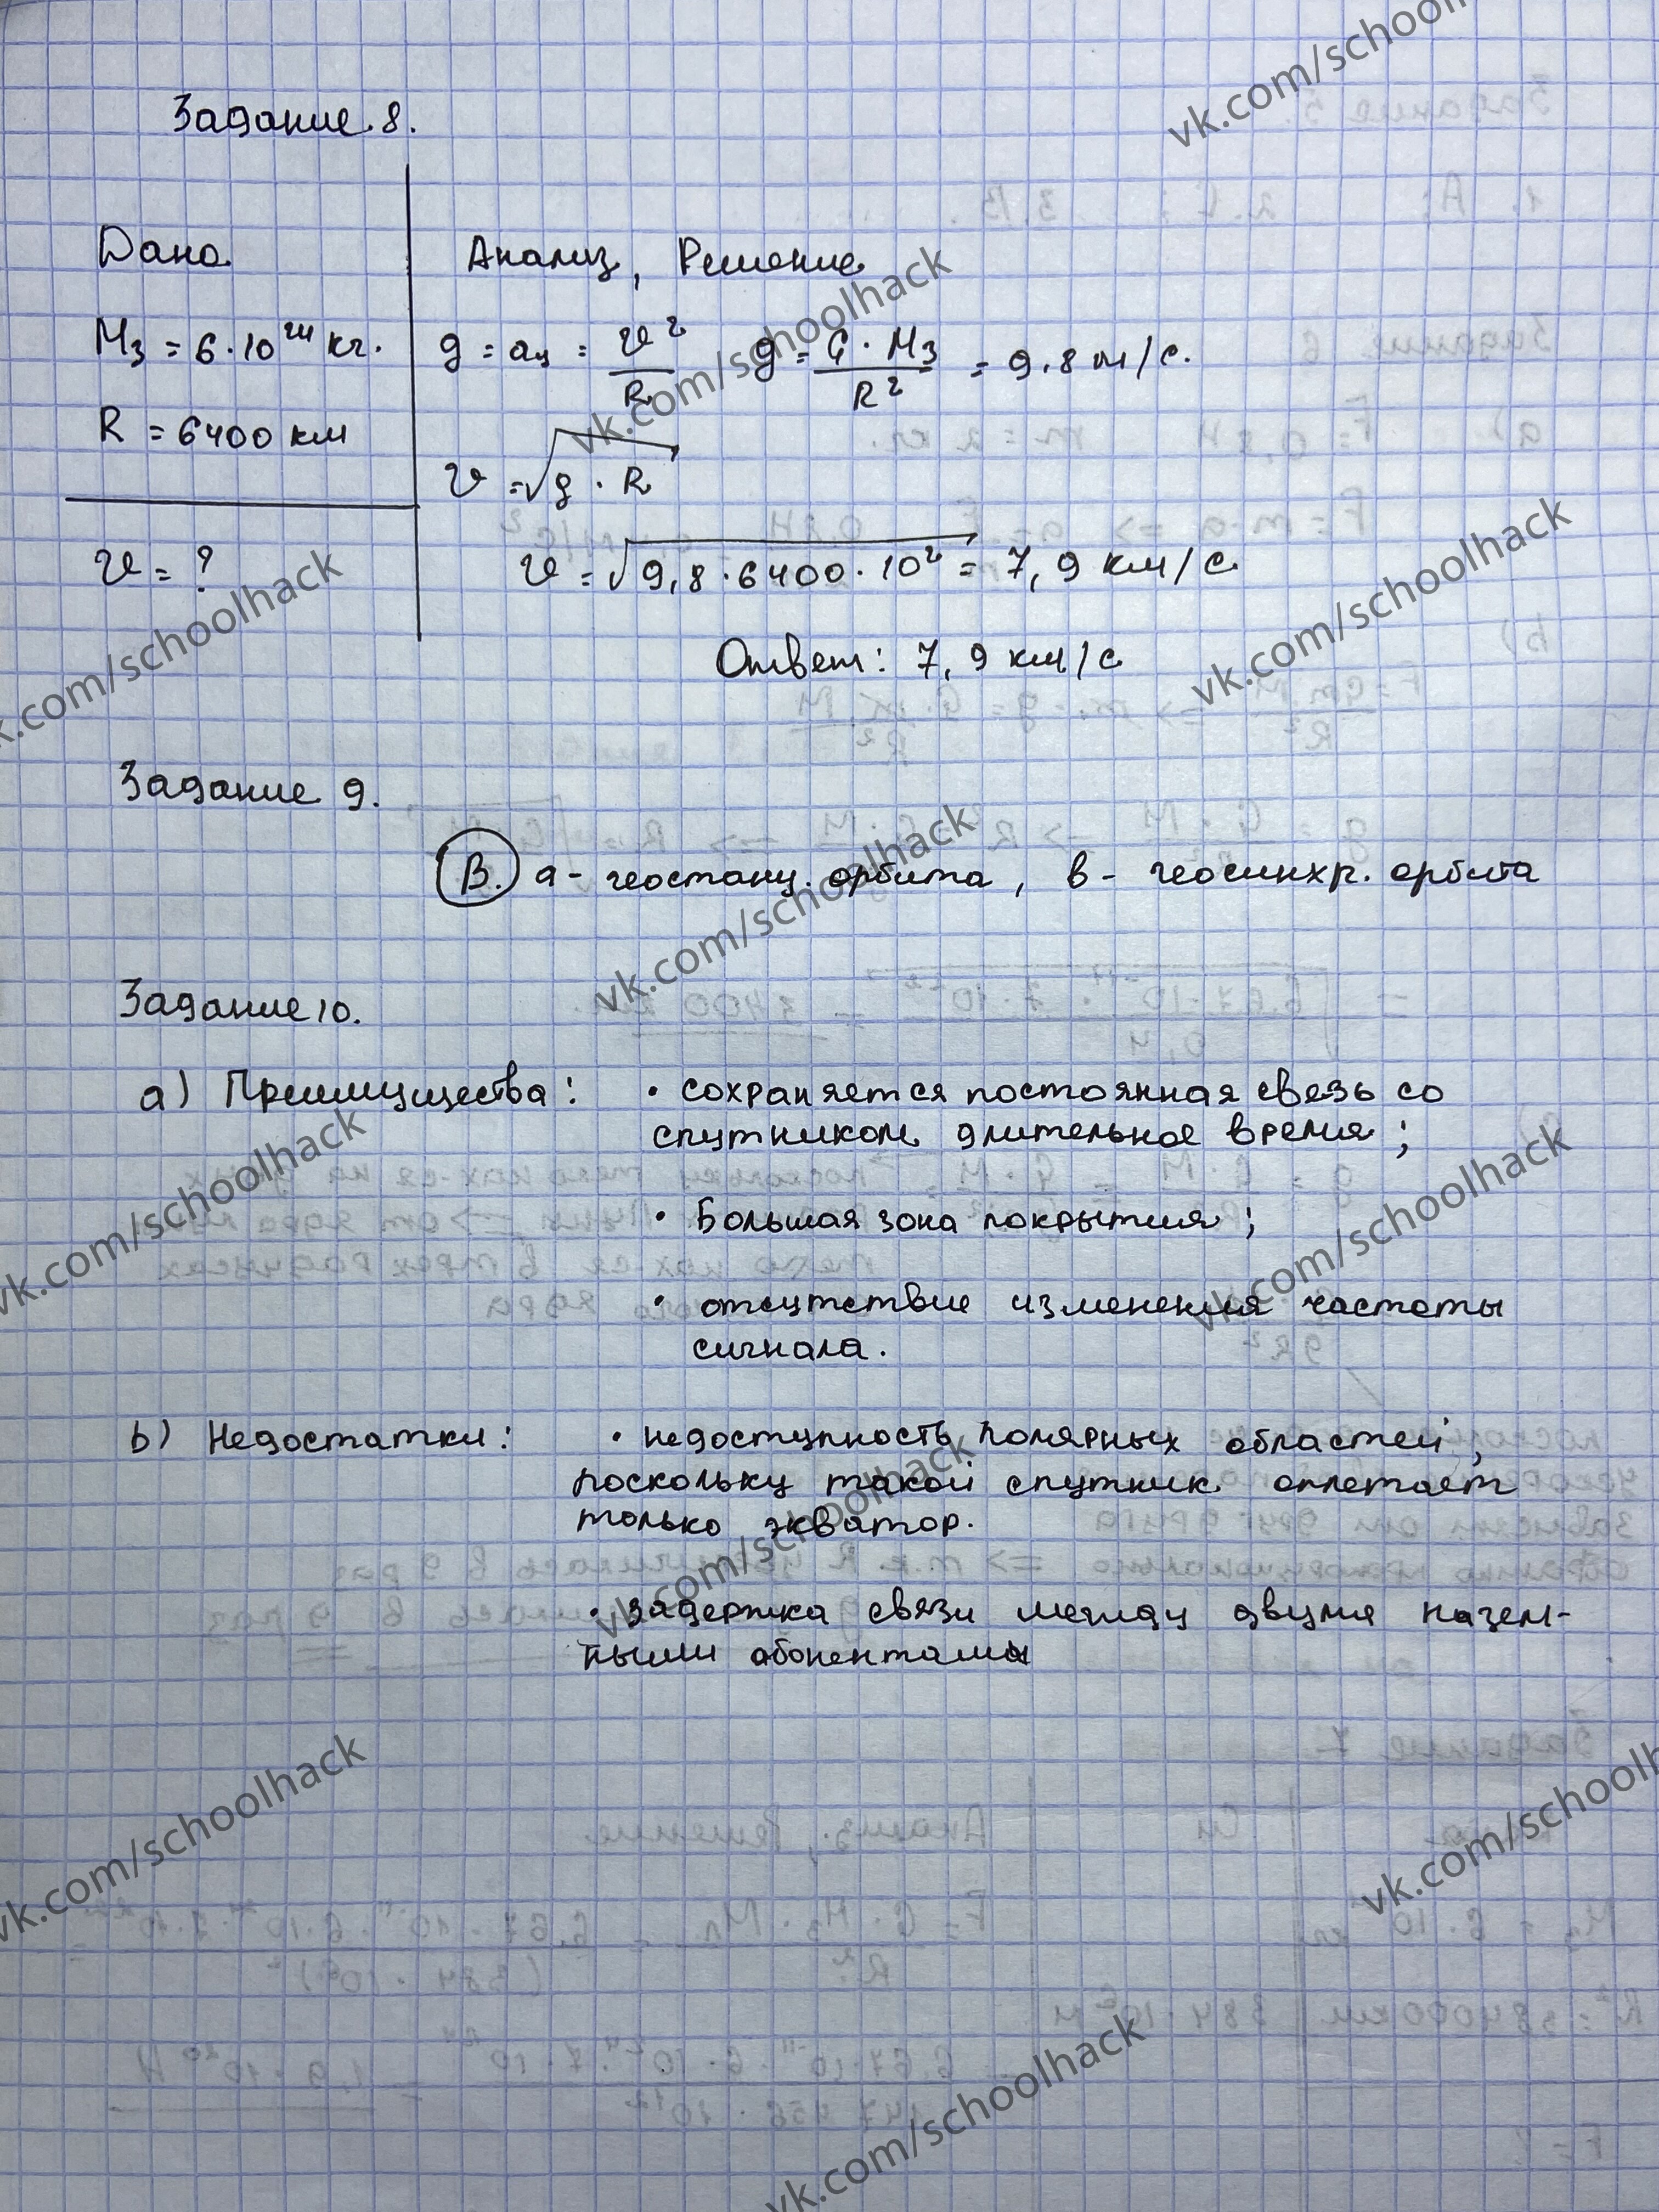 Задание 8.
Дано
Анализ, Решение
Mз = 6·10²⁴ кг.
g = aц = v²/R   g = G·Mз/R² = 9.8 м/с.
R = 6400 км
v = √g · R
v = ?
v = √9,8·6400·10² = 7,9 км/с
Ответ: 7,9 км/с
Задание 9.
B. a - геостац. орбита, в - геосинхр. орбита
Задание 10.
a) Преимущества: • сохраняется постоянная связь со
спутником длительное время;
• Большая зона покрытия;
• отсутствие изменения частоты
сигнала.
b) Недостатки: • недоступность полярных областей,
поскольку такой спутник оплетает
только экватор.
• задержка связи между двумя назем-
ными абонентами
vk.com/schoolhack
vk.com/schoolhack
vk.com/schoolhack
vk.com/schoolhack
vk.com/schoolhack
vk.com/schoolhack
vk.com/schoolhack
vk.com/schoolhack
vk.com/schoolhack
vk.com/schoolhack
vk.com/schoolhack